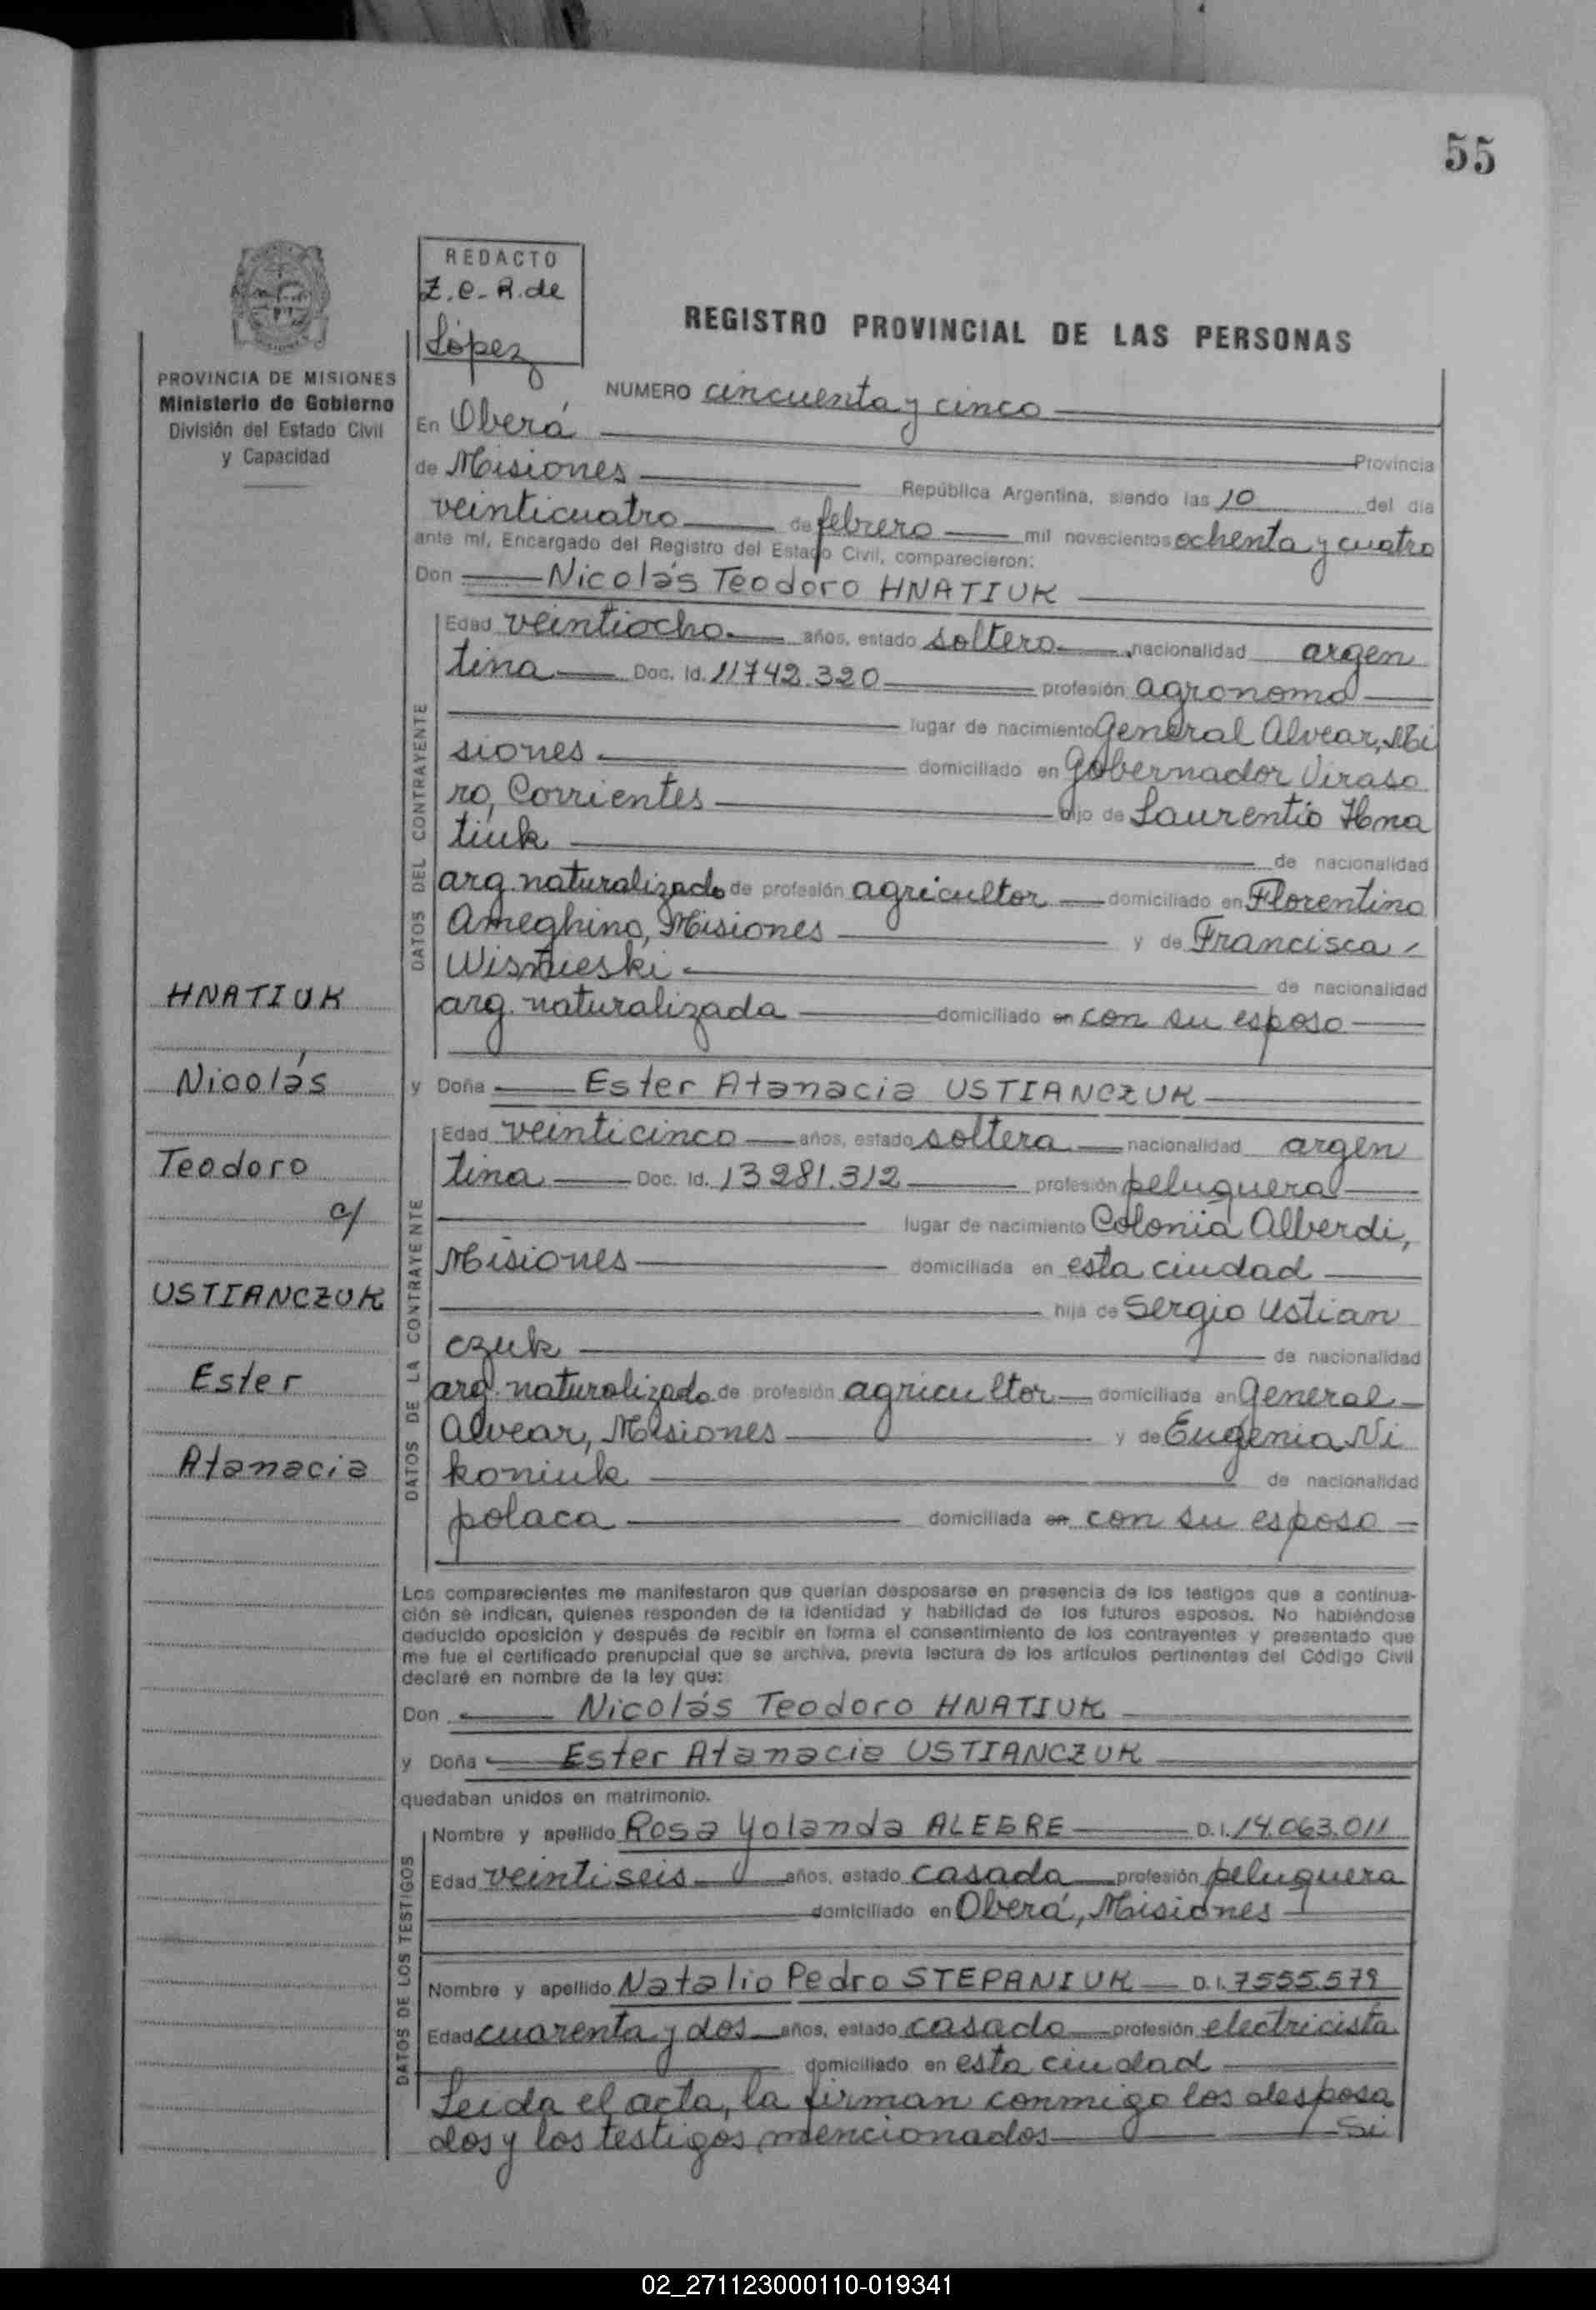 55
REDACTO
Z.C.R. de
López
REGISTRO PROVINCIAL DE LAS PERSONAS
PROVINCIA DE MISIONES
Ministerio de Gobierno
División del Estado Civil
y Capacidad
NUMERO cincuenta y cinco
En Oberá
Provincia
de Misiones República Argentina, siendo las 10 del día
veinticuatro de febrero mil novecientos ochenta y cuatro
ante mí, Encargado del Registro del Estado Civil, comparecieron:
Don Nicolás Teodoro HNATIUK
DATOS DEL CONTRAYENTE
Edad veintiocho años, estado soltero nacionalidad argen
tina Doc. Id. 11742.320 profesión agronomo
lugar de nacimiento General Alvear, Mi
siones domiciliado en Gobernador Viraso
ro, Corrientes hijo de Laurentio Hna
tiuk de nacionalidad
arg. naturalizado de profesión agricultor domiciliado en Florentino
Ameghino, Misiones y de Francisca
Wisnieski de nacionalidad
arg. naturalizada domiciliado en con su esposo
y Doña Ester Atanacia USTIANCZUK
DATOS DE LA CONTRAYENTE
Edad veinticinco años, estado soltera nacionalidad argen
tina Doc. Id. 13281.312 profesión peluquera
lugar de nacimiento Colonia Alberdi,
Misiones domiciliada en esta ciudad
hija de Sergio Ustian
czuk de nacionalidad
arg. naturalizado de profesión agricultor domiciliada en General
Alvear, Misiones y de Eugenia Ni
koniuk de nacionalidad
polaca domiciliada en con su esposo
HNATIUK
Nicolás
Teodoro
c/
USTIANCZUK
Ester
Atanacia
Los comparecientes me manifestaron que querían desposarse en presencia de los testigos que a continua-
ción se indican, quienes responden de la identidad y habilidad de los futuros esposos. No habiéndose
deducido oposición y después de recibir en forma el consentimiento de los contrayentes y presentado que
me fue el certificado prenupcial que se archiva, previa lectura de los artículos pertinentes del Código Civil
declaré en nombre de la ley que:
Don Nicolás Teodoro HNATIUK
y Doña Ester Atanacia USTIANCZUK
quedaban unidos en matrimonio.
DATOS DE LOS TESTIGOS
Nombre y apellido Rosa Yolanda ALEGRE D.I. 14.063.011
Edad veintiseis años, estado casada profesión peluquera
domiciliado en Oberá, Misiones
Nombre y apellido Natalio Pedro STEPANIUK D.I. 7555.579
Edad cuarenta y dos años, estado casado profesión electricista
domiciliado en esta ciudad
Leida el acta, la firman conmigo los desposa
dos y los testigos mencionados Si
02_271123000110-019341